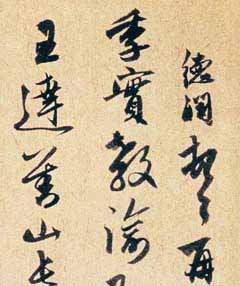 德潤再
季實教諭
王達善山長